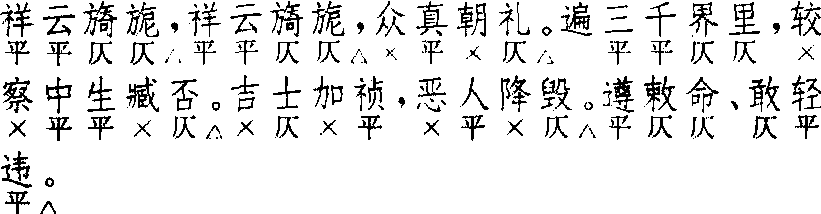 祥云旖旎，祥云旖旎，众真朝礼。遍三千界里，较
平平仄仄△平平仄仄△×平×仄△平平仄仄×
察中生臧否。吉士加祯，恶人降毁。遵敕命、敢轻
×平平×仄△×仄×平×平×仄△平仄仄仄平
违。
平△